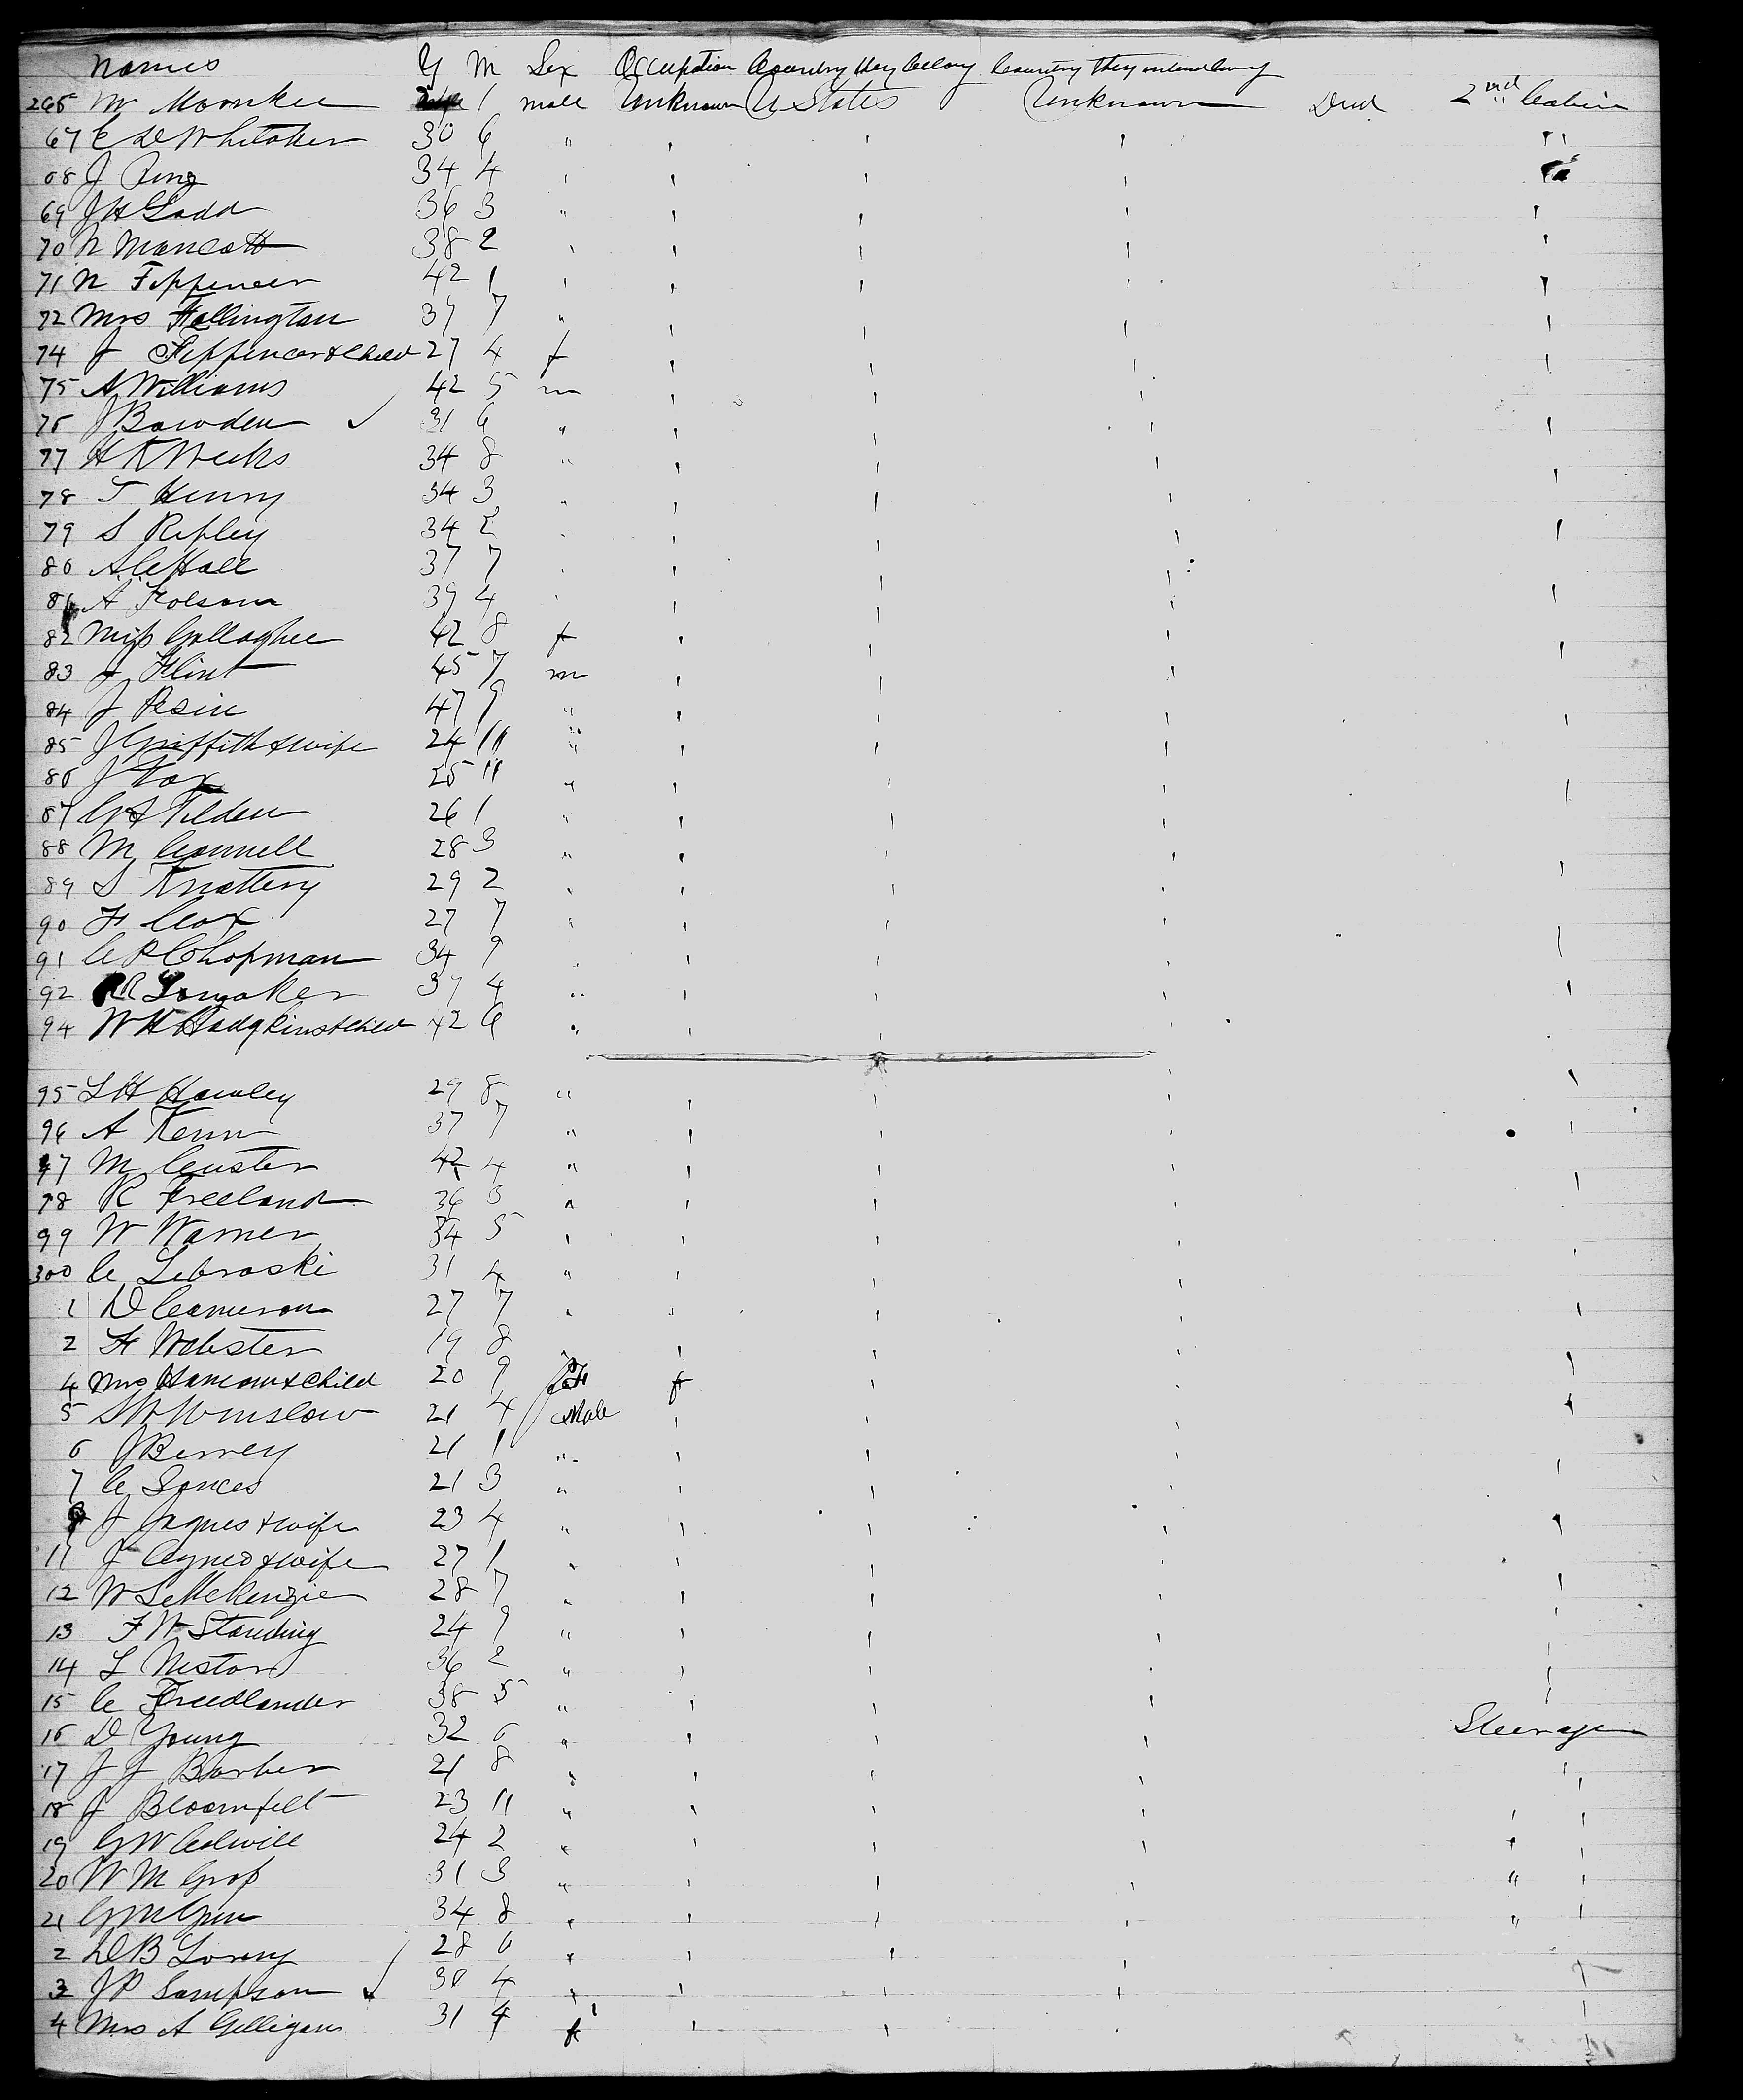 Names Y M Sex Occupation Country they belong Country they intend
265 1 male Unknown U States Unknown Died 2nd Cabin
67 C D Whitaker 30 6 " ' ' ' "
68 J Ring 34 4 ' ' ' '
69 J H Gadd 36 3 " ' ' ' '
70 N 38 2 ' ' ' ' '
71 N Fippeneer 42 1 ' ' ' ' '
72 Mrs Hallington 37 7 " ' ' ' '
74 J & Child 27 4 f ' ' ' '
75 A Williams 42 5 m ' ' '
76 J Bowden ✓ 31 6 " ' ' ' '
77 H K Weeks 34 8 " ' ' '
78 T Henry 34 3 " ' ' ' '
79 S Ripley 34 2 ' ' ' '
80 A C Hall 37 7 ' ' '
81 A Folsom 39 4 ' ' ' ' '
82 Miss Gallagher 42 8 f ' '
83 J Flint 45 7 m ' ' ' '
84 J 47 9 " ' ' ' '
85 J Griffith & wife 24 11 " ' ' '
86 J Fox 25 11 " ' ' '
87 G S Tilden 26 1 " ' ' ' '
88 M Connell 28 3 " ' ' '
89 S Knattery 29 2 ' ' ' ' '
90 F Cox 27 7 " ' ' '
91 C P Chapman 34 9 ' ' ' '
92 R Longaker 37 4 " ' ' ' '
94 W H Hodgkins & Child 42 6 " ' '
95 L H Hawley 29 8 " ' ' ' '
96 A Kenn 37 7 " ' ' ' '
97 M Custer 42 4 " ' ' '
98 R Freeland 36 3 " ' ' ' '
99 W Warner 34 5 ' ' ' '
300 C Lebraski 31 4 " ' ' ' '
1 D Cameron 27 7 ' ' ' ' '
2 F Webster 19 8 ' ' '
4 Mrs & Child 20 9 F f ' ' '
5 S W Winslow 21 4 Male ' ' ' '
6 J Berrey 21 1 " ' ' '
7 C 21 3 " ' ' ' '
9 J & wife 23 4 " ' ' ' '
11 J & wife 27 1 " ' '
12 W S McKenzie 28 7 " ' ' ' '
13 F W Standing 24 9 " ' ' ' '
14 L Nestor 36 2 " ' ' ' '
15 C Freedlander 38 5 " ' ' ' '
16 D Young 32 6 " ' ' ' Steerage
17 J J Barber 21 8 " ' ' ' '
18 J Bloomfelt 23 11 " ' ' ' ' '
19 G W 24 2 " ' ' ' "
20 W M Gross 31 3 " ' ' ' " '
21 G M 34 8 " ' ' ' " '
2 D B Lorey 28 6 " ' ' '
3 J P Sampson ✓ 30 4 " ' ' '
4 Mrs A Gilligan 31 4 f ' ' ' '